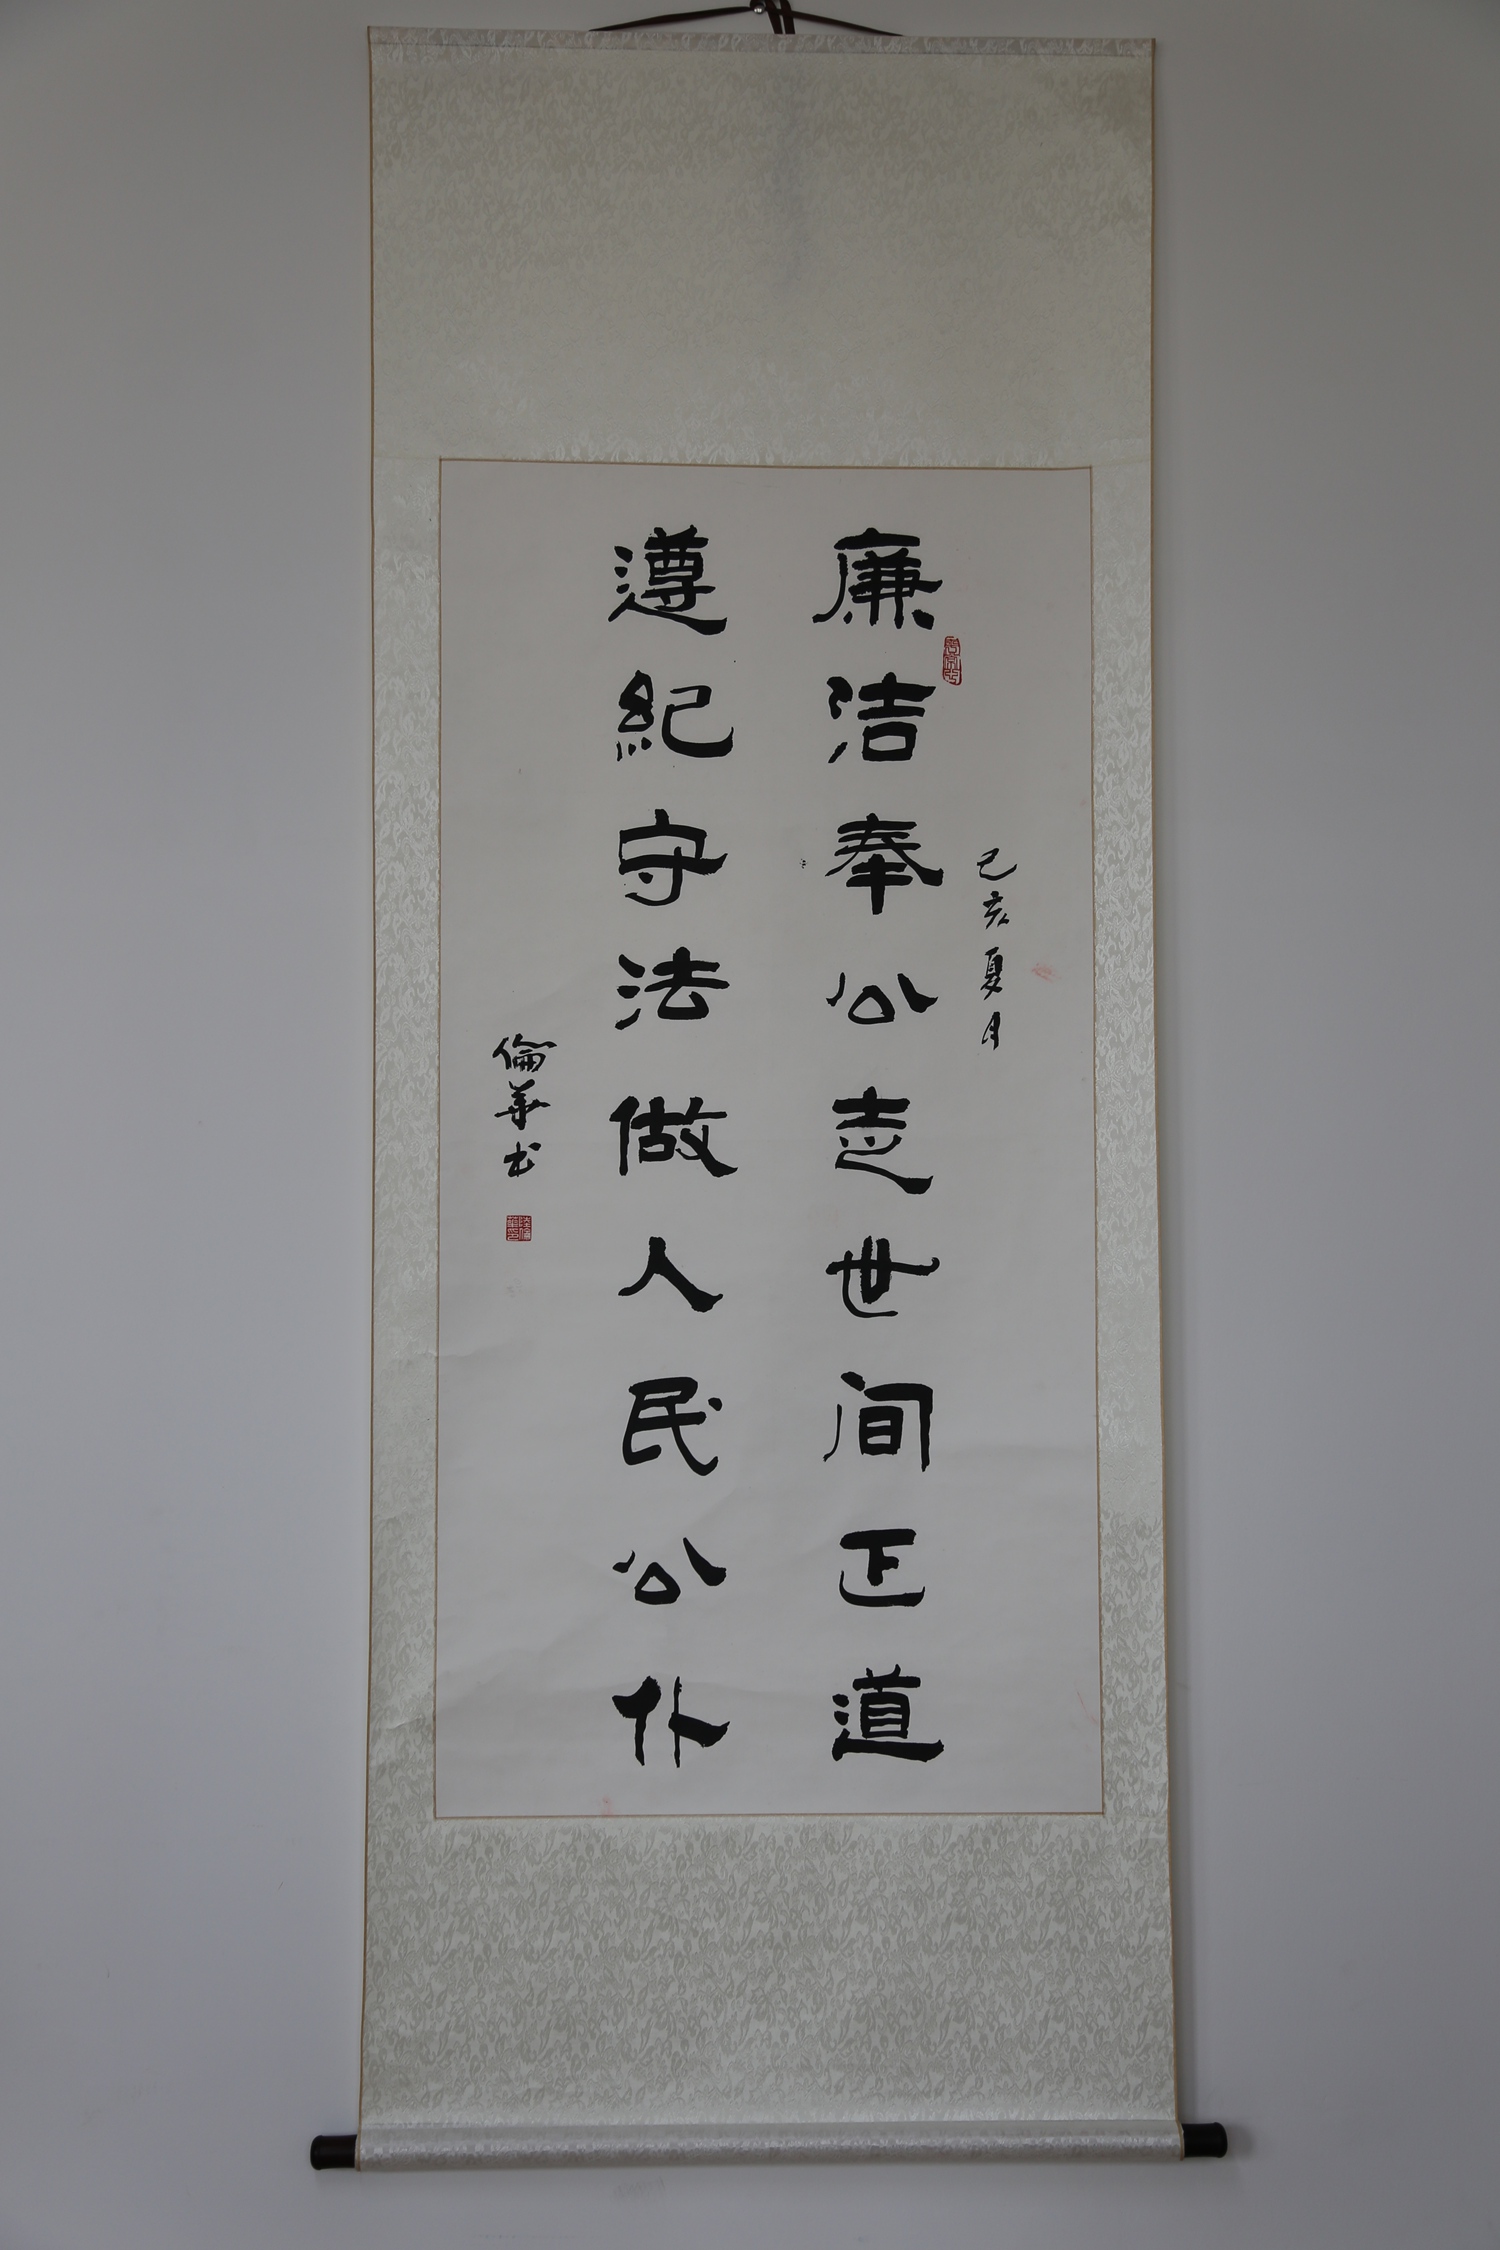 己亥夏月
廉洁奉公走世间正道
遵纪守法做人民公仆
倫華书